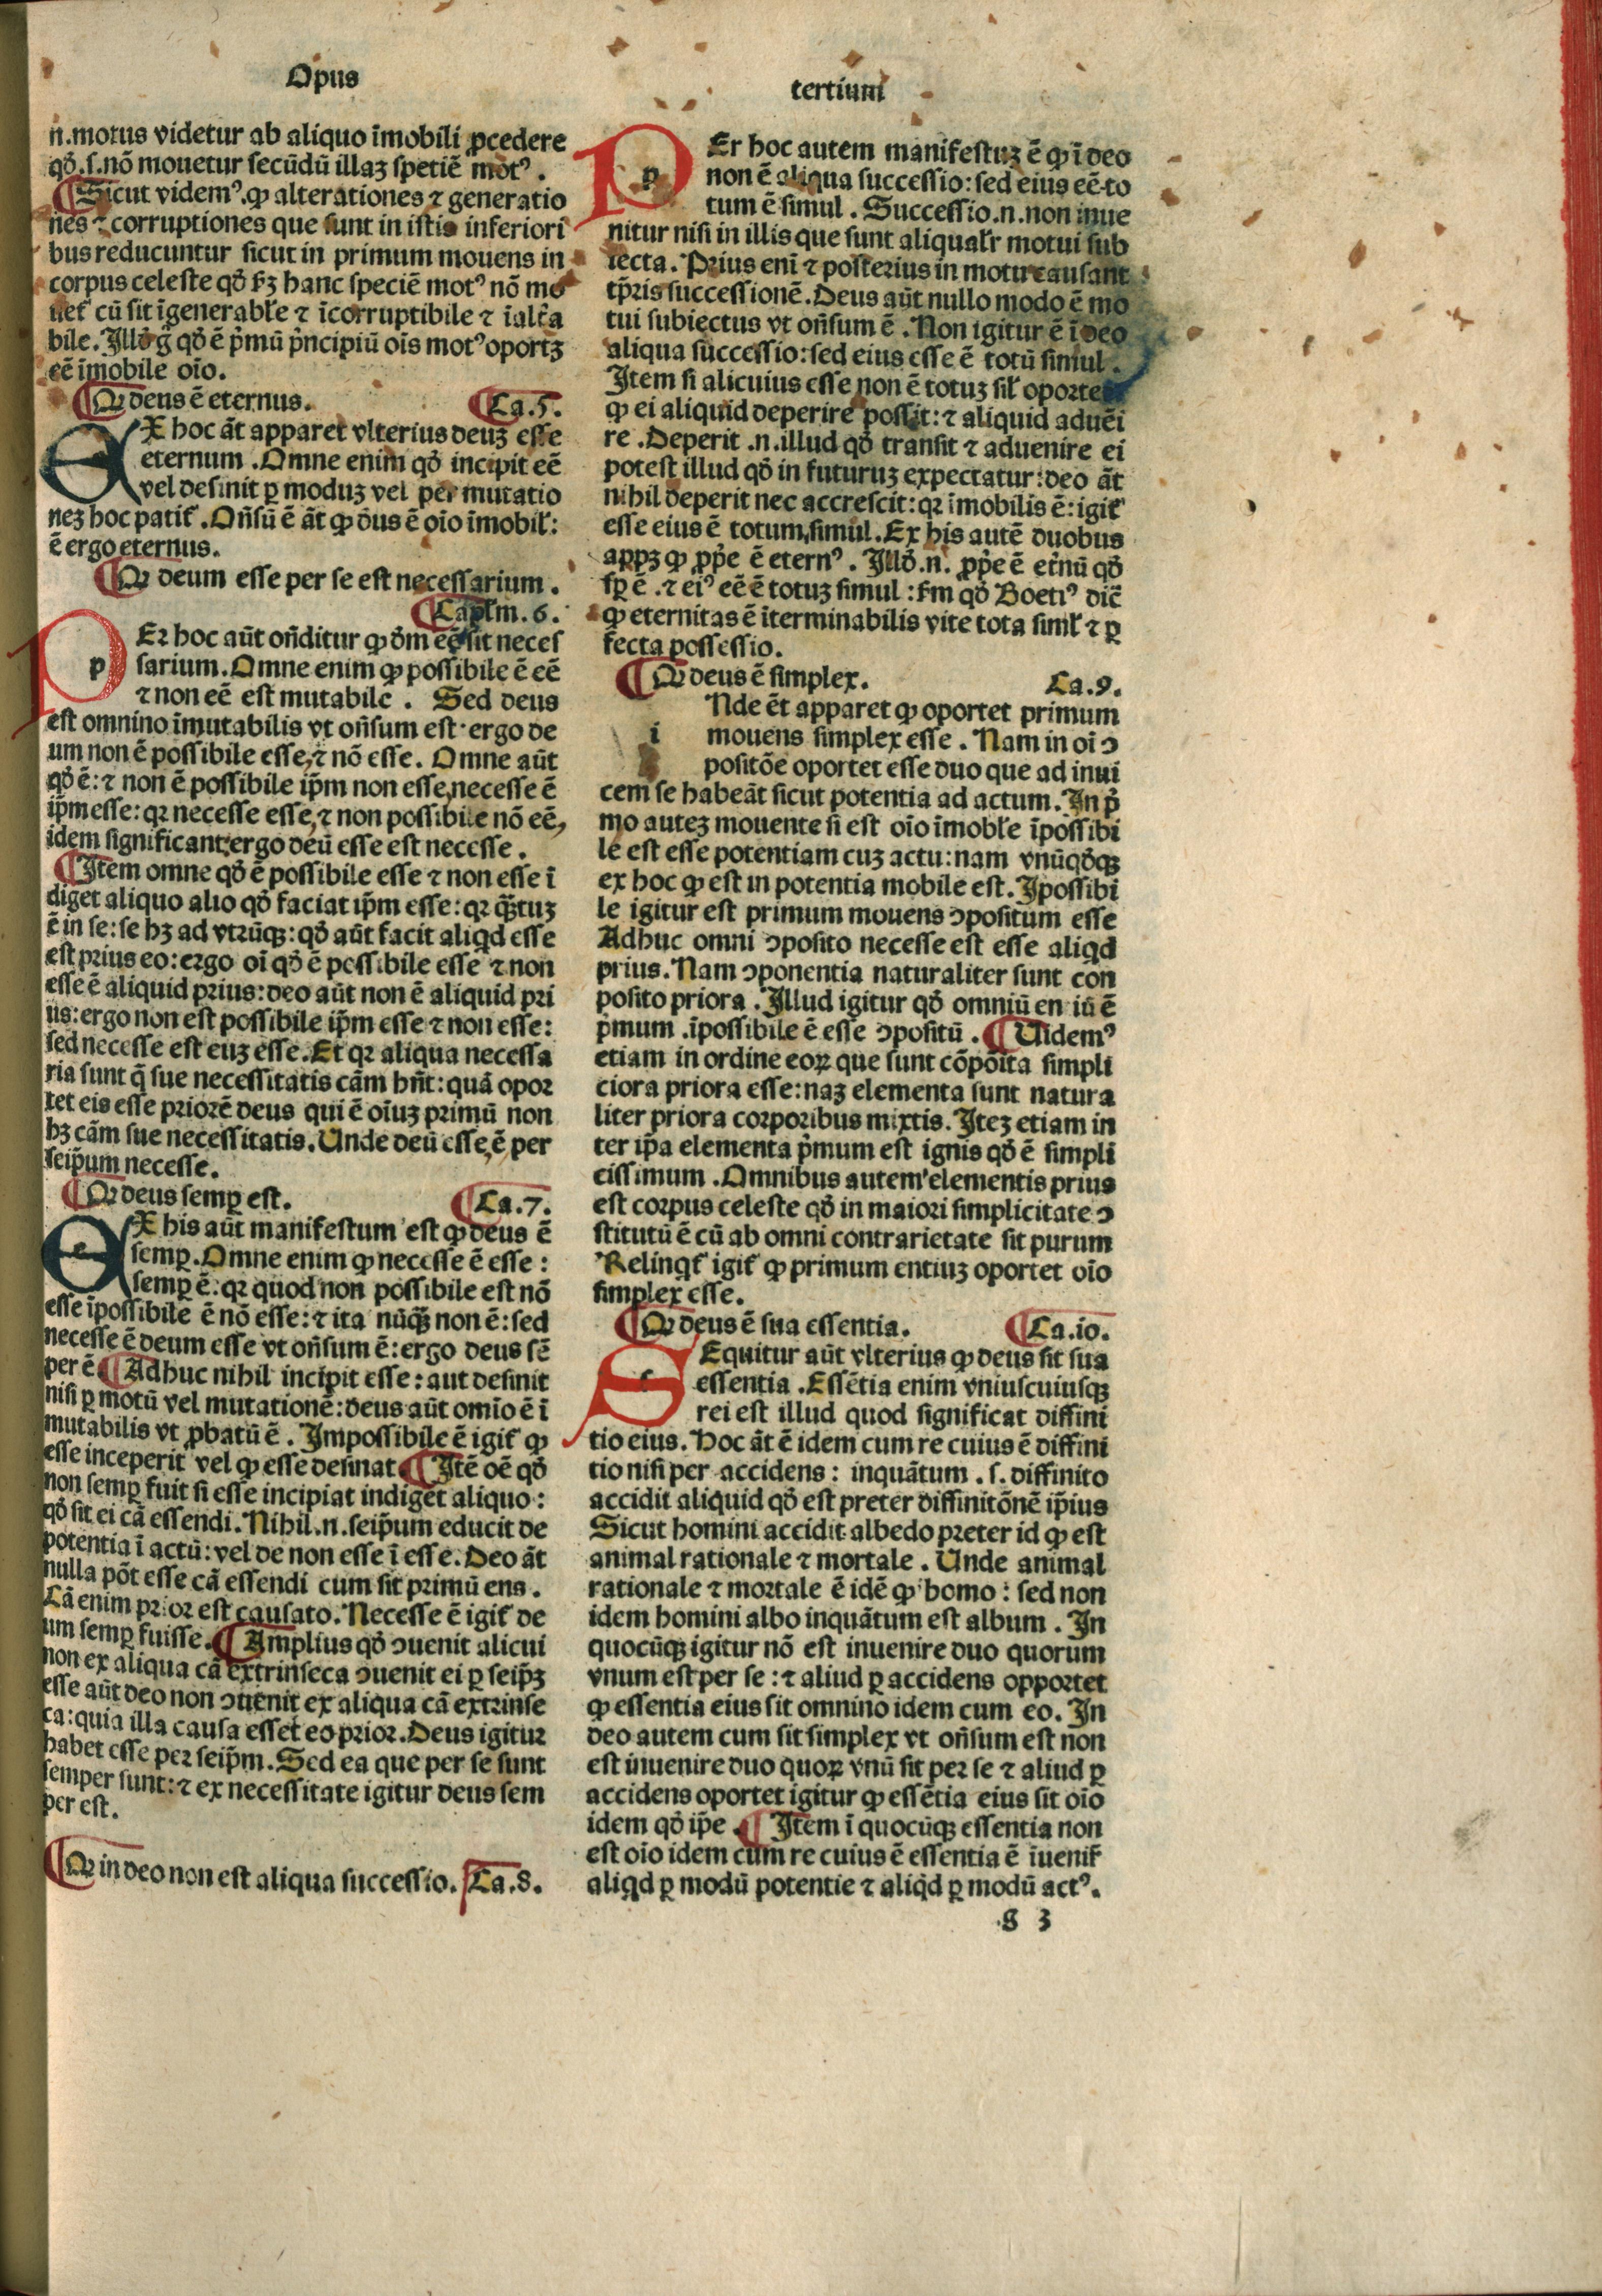 Opus
tertium
n.motus videtur ab aliquo īmobili ꝓcedere
qḋ.s.nō mouetur secūdū illaꝫ spetiē motꝰ.
¶Sicut videmꝰ.ꝙ alterationes ⁊ generatio
nes ⁊ corruptiones que sunt in istis inferiori
bus reducuntur sicut in primum mouens in
corpus celeste qḋ ẜꝫ hanc speciē motꝰ nō mo
uet᷑ cū sit īgenerabł̵e ⁊ īcorruptibile ⁊ īalt᷑a
bile. Illḋ g̊ qḋ ē p̊mū p̊ncipiū oīs motꝰ oportꝫ
eē īmobile oīo.
¶Qꝛ deus ē eternus. ¶Ca.5.
EX hoc āt apparet vlterius deuꝫ esse
eternum. Omne enim qḋ incipit eē
vel desinit ꝑ moduꝫ vel per mutatio
neꝫ hoc patit᷑. On̄sū ē āt ꝙ ds̄ ē oīo īmobił:
ē ergo eternus.
¶Qꝛ deum esse per se est necessarium.
¶Capł̵m.6.
p
PEr hoc aūt on̄ditur ꝙ dm̄ eē sit neces
sarium. Omne enim ꝙ possibile ē eē
⁊ non eē est mutabile. Sed deus
est omnino īmutabilis vt on̄sum est. ergo de
um non ē possibile esse, ⁊ nō esse. Omne aūt
qḋ ē: ⁊ non ē possibile ip̄m non esse, necesse ē
ip̄m esse: qꝛ necesse esse, ⁊ non possibile nō eē,
idem significant: ergo deū esse est necesse.
¶Item omne qḋ ē possibile esse ⁊ non esse ī
diget aliquo alio qḋ faciat ip̄m esse: qꝛ q̄ꝫtuꝫ
ē in se: se hꝫ ad vtrūqꝫ: qḋ aūt facit aliqd esse
est prius eo: ergo oī qḋ ē possibile esse ⁊ non
esse ē aliquid prius: deo aūt non ē aliquid pri
us: ergo non est possibile ip̄m esse ⁊ non esse:
sed necesse est euꝫ esse. Et qꝛ aliqua necessa
ria sunt q̄ sue necessitatis cām hn̄t: quā opor
tet eis esse priorē deus qui ē oīuꝫ primū non
hꝫ cām sue necessitatis. Unde deū esse, ē per
seip̄um necesse.
¶Qꝛ deus semꝑ est. ¶Ca.7.
e
EX his aūt manifestum est ꝙ deus ē
semꝑ. Omne enim ꝙ necesse ē esse:
semꝑ ē: qꝛ quod non possibile est nō
esse īpossibile ē nō esse: ⁊ ita nūq̄ꝫ non ē: sed
necesse ē deum esse vt on̄sum ē: ergo deus sē
per ē ¶Adhuc nihil incipit esse: aut desinit
nisi ꝑ motū vel mutationē: deus aūt omīo ē ī
mutabilis vt ꝓbatū ē. Impossibile ē igit᷑ ꝙ
esse inceperit vel ꝙ esse desinat ¶Itē oē qḋ
non semꝑ fuit si esse incipiat indiget aliquo:
qḋ sit ei cā essendi. Nihil.n.seip̄um educit de
potentia ī actū: vel de non esse ī esse. Deo āt
nulla pōt esse cā essendi cum sit primū ens.
Cā enim prior est causato. Necesse ē igit᷑ de
um semꝑ fuisse. ¶Amplius qḋ ↄuenit alicui
non ex aliqua cā extrinseca ↄuenit ei ꝑ seip̄ꝫ
esse aūt deo non ↄuenit ex aliqua cā extrinse
ca: quia illa causa esset eo prior. Deus igitur
habet esse per seip̄m. Sed ea que per se sunt
semper sunt: ⁊ ex necessitate igitur deus sem
per est.
¶Qꝛ in deo non est aliqua successio. ¶Ca.8.
p
PEr hoc autem manifestuꝫ ē ꝙ ī deo
non ē aliqua successio: sed eius eē to
tum ē simul. Successio.n.non inue
nitur nisi in illis que sunt aliqual᷑r motui sub
iecta. Prius enī ⁊ posterius in motu causant
tp̄ris successionē. Deus aūt nullo modo ē mo
tui subiectus vt on̄sum ē. Non igitur ē ī deo
aliqua successio: sed eius esse ē totū simul.
Item si alicuius esse non ē totuꝫ sił oportet
ꝙ ei aliquid deperire possit: ⁊ aliquid aduēi
re. Deperit.n.illud qḋ transit ⁊ aduenire ei
potest illud qḋ in futuruꝫ expectatur: deo āt
nihil deperit nec accrescit: qꝛ īmobilis ē: igit᷑
esse eius ē totum simul. Ex his autē duobus
appꝫ ꝙ ꝓp̄e ē eternꝰ. Illḋ.n. ꝓp̄e ē et᷑nū qḋ
sꝑ ē. ⁊ eiꝰ eē ē totuꝫ simul: ẜm qḋ Boetiꝰ dic̄
ꝙ eternitas ē īterminabilis vite tota simł ⁊ ꝑ
fecta possessio.
¶Qꝛ deus ē simplex. Ca.9.
i
Nde ēt apparet ꝙ oportet primum
mouens simplex esse. Nam in oī ↄ
positōe oportet esse duo que ad inui
cem se habeāt sicut potentia ad actum. In p̊
mo auteꝫ mouente si est oīo īmobł̵e īpossibi
le est esse potentiam cuꝫ actu: nam vnūqḋqꝫ
ex hoc ꝙ est in potentia mobile est. Ipossibi
le igitur est primum mouens ↄpositum esse
Adhuc omni ↄposito necesse est esse aliqd
prius. Nam ↄponentia naturaliter sunt con
posito priora. Illud igitur qḋ omniū entiū ē
p̊mum. īpossibile ē esse ↄpositū. ¶Uidemꝰ
etiam in ordine eoꝝ que sunt cōpōita simpli
ciora priora esse: naꝫ elementa sunt natura
liter priora corporibus mixtis. Iteꝫ etiam in
ter ip̄a elementa p̊mum est ignis qḋ ē simpli
cissimum. Omnibus autem elementis prius
est corpus celeste qḋ in maiori simplicitate ↄ
stitutū ē cū ab omni contrarietate sit purum
Relinqt᷑ igit᷑ ꝙ primum entiuꝫ oportet oīo
simplex esse.
¶Qꝛ deus ē sua essentia. ¶Ca.10.
s
SEquitur aūt vlterius ꝙ deus sit sua
essentia. Essētia enim vniuscuiusqꝫ
rei est illud quod significat diffini
tio eius. Hoc āt ē idem cum re cuius ē diffini
tio nisi per accidens: inquātum.s.diffinito
accidit aliquid qḋ est preter diffinitōnē ip̄ius
Sicut homini accidit albedo preter id ꝙ est
animal rationale ⁊ mortale. Unde animal
rationale ⁊ mortale ē idē ꝙ homo: sed non
idem homini albo inquātum est album. In
quocūqꝫ igitur nō est inuenire duo quorum
vnum est per se: ⁊ aliud ꝑ accidens opportet
ꝙ essentia eius sit omnino idem cum eo. In
deo autem cum sit simplex vt on̄sum est non
est inuenire duo quoꝝ vnū sit per se ⁊ aliud ꝑ
accidens oportet igitur ꝙ essētia eius sit oīo
idem qḋ ip̄e. ¶Item ī quocūqꝫ essentia non
est oīo idem cum re cuius ē essentia ē īuenir᷑
aliqd ꝑ modū potentie ⁊ aliqd ꝑ modū actꝰ.
g 3